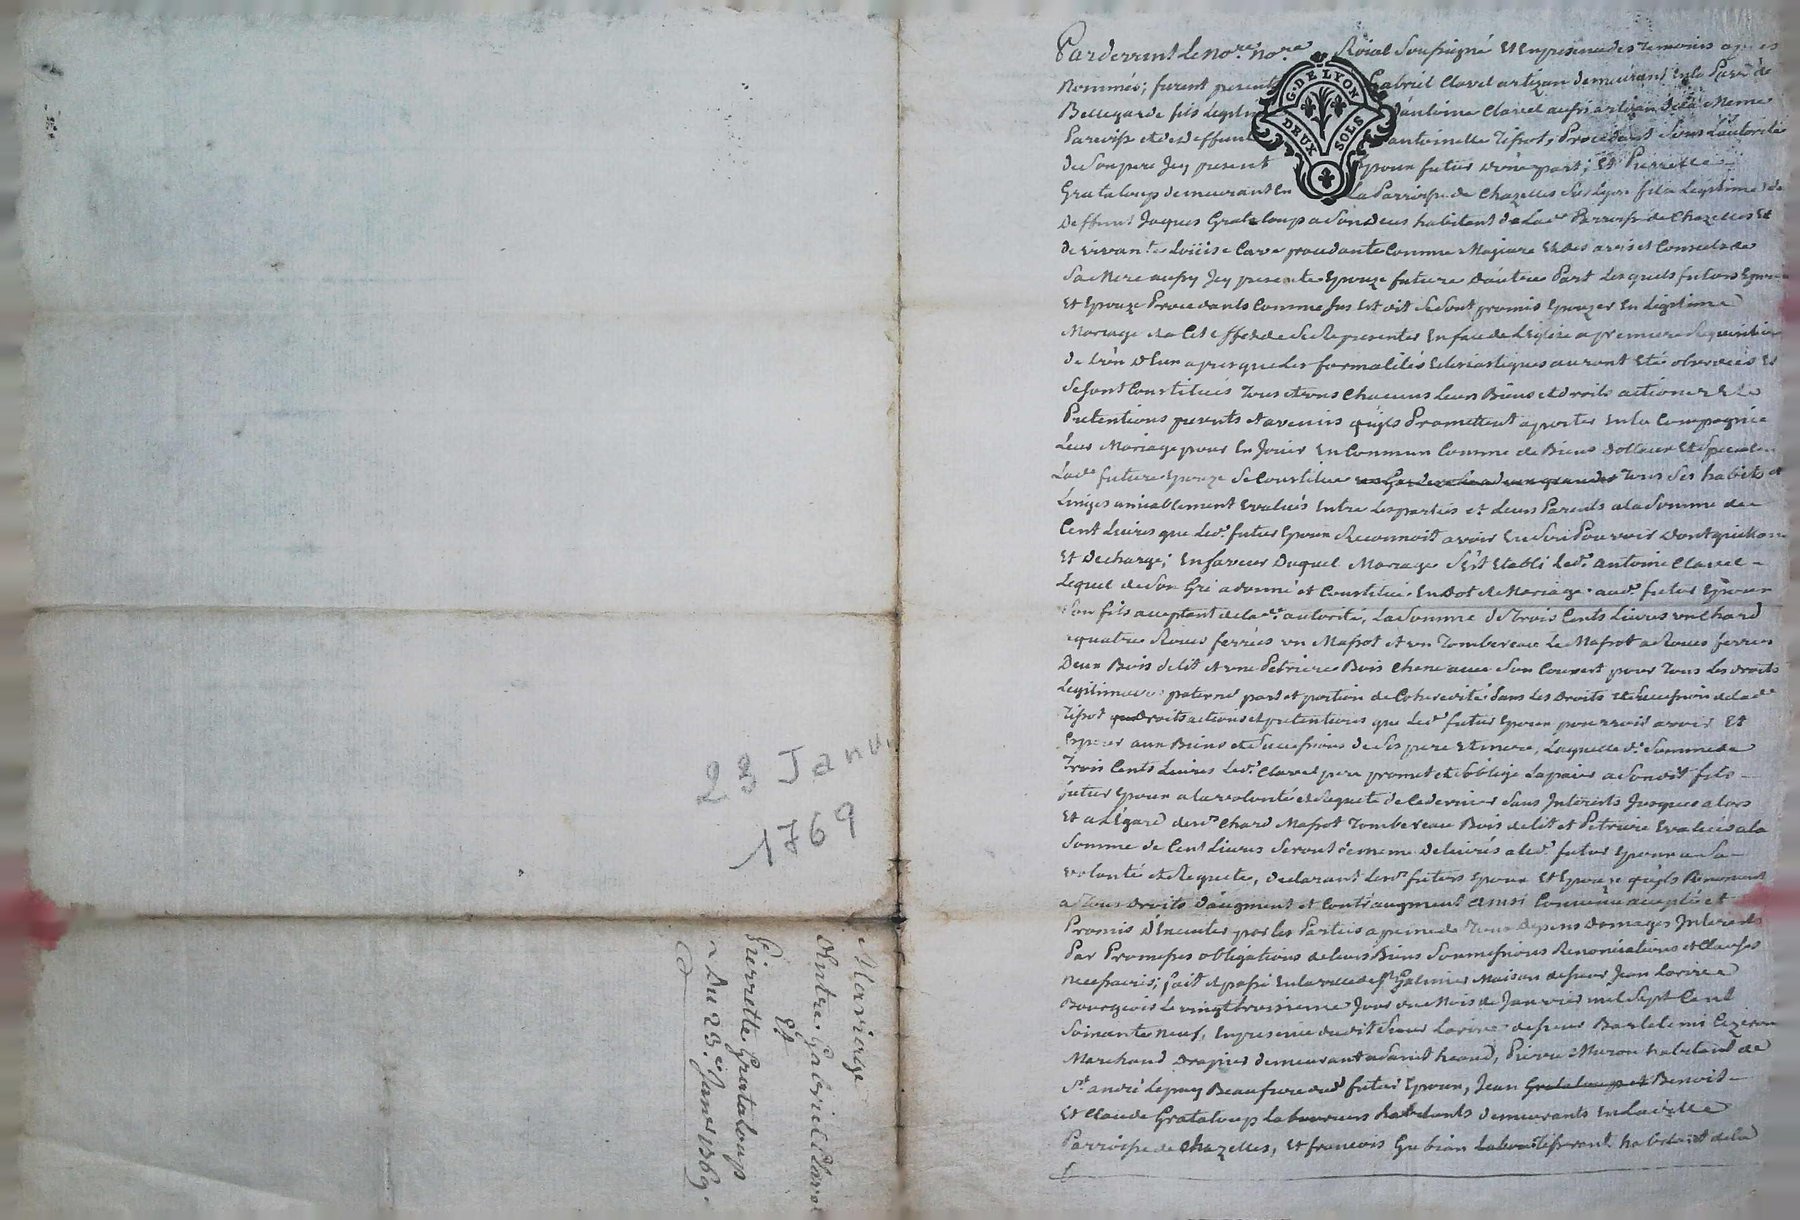 23 Janv.
1769
Mariage
Entre Gabriel Clavel
Et
Pierrette Grataloup
Du 23.e Janer 1769.
G. DE LYON
DEUX SOLS
Pardevent Le nore. nore Roial Soussigné Et En presence des Temoins apres
Nommés; furent presents Gabriel Clavel artizan demeurant En la Parse de
Bellegarde fils Legitime d'antoine Clavel aussi artizan de la Meme
Paroisse et de deffunte antoinette Tissot, Procedant Sous L'autorité
de Son pere Jcy present Epoux futur d'une part; Et Pierrette
Grataloup demeurant En La Parroisse de Chazelles Sur Lyon fille Legitime de
Deffunt Jaques Grataloup a Son deces habitant de La de Parroisse de Chazelles Et
de vivante Loüise Cave procedante Comme Majeure Et des avis et Conseils de
Sa Mere aussy Jcy presente Epouze future D'autre Part Les quels futurs Epoux
Et Epouze Procedants Comme sus Est dit Se Sont promis Epouzer En Legitime
Mariage et a Cet Effet de Se Representer En face de L'Eglize a premiere Requisition
de L'un D'Eux apres que Les formalités Eclesiastiques auront Eté observées Et
Se sont Constitués Tous et uns Chacuns Leurs Biens et droits actions Et
Pretentions presents et avenirs qu'ils Promettent aporter En la Compagnie
Leur Mariage pour En Jouir En Commun Comme de Biens dotaux Et Specialem
La de future Epouze Se Constitue Tous Ses habits et
Linges amiablement Evalués Entre Les parties et Leurs Parents a la Somme de
Cent Livres que Led. futur Epoux Reconnoit avoir En Son Pouvoir Dont quittance
Et Decharge; En faveur Duquel Mariage S'est Etabli Led. antoine Clavel
Lequel de Son Gré a donné et Constitué En Dot de Mariage aud. futur Epoux
Son fils acceptant de La de. autorité, La Somme de Trois Cents Livres un Chard
a quatre Roues ferrées un Massot et un Tombereau Le Massot a Roues ferrées
Deux Bois de lit et une Petriere Bois Chene avec Son Couvert pour Tous Les droits
Legitimaires paternels part et portion de Coheredité dans Les Droits et Succession de La de
Tissot droits actions et pretentions que Led futur Epoux pourroit avoir Et
Esperer aux Biens et Successions de Ses pere Et mere, Laquelle d. Somme de
Trois Cents Livres Led. Clavel pere promet et S'oblige La paier a Son dit fils
futur Epoux a La volonté et Requete de Ce dernier Sans Interets Jusques alors
Et a L'Egard des. Chard Massot Tombereau Bois de lit et Petriere Evalués a la
Somme de Cent Livres Seront de meme Delivrés a Led. futur Epoux a Sa
volonté et Requete, Declarant Les. futurs Epoux Et Epouze qu'ils Renoncent
a Tous droits D'augment et Contr'augment ainsi Convenu accepté et
Promis D'Executer par Les Parties a peine de Tous Depens Domages Interets
Par Promesses obligations de Leurs Biens Soumissions Renonciations et Clauses
necessaires; fait et passé En la ville de St Galmier Maison de sieur Jean Lorire
Bourgeois Le vingt troisieme Jour du Mois de Janvier mil Sept Cent
Soixante neuf, En presence dudit Sieur Lorire de sieur Bartelemi
Marchand Drapier demeurant a Saint heand, Pierre Muron habitant de
St. andré Le puy Beaufrere dud futur Epoux, Jean Grataloup et Benoit
Et Claude Grataloup Laboureurs habitants demeurants En La ville
Parroisse de Chazelles, Et francois Gubian Tisserant habitant de la